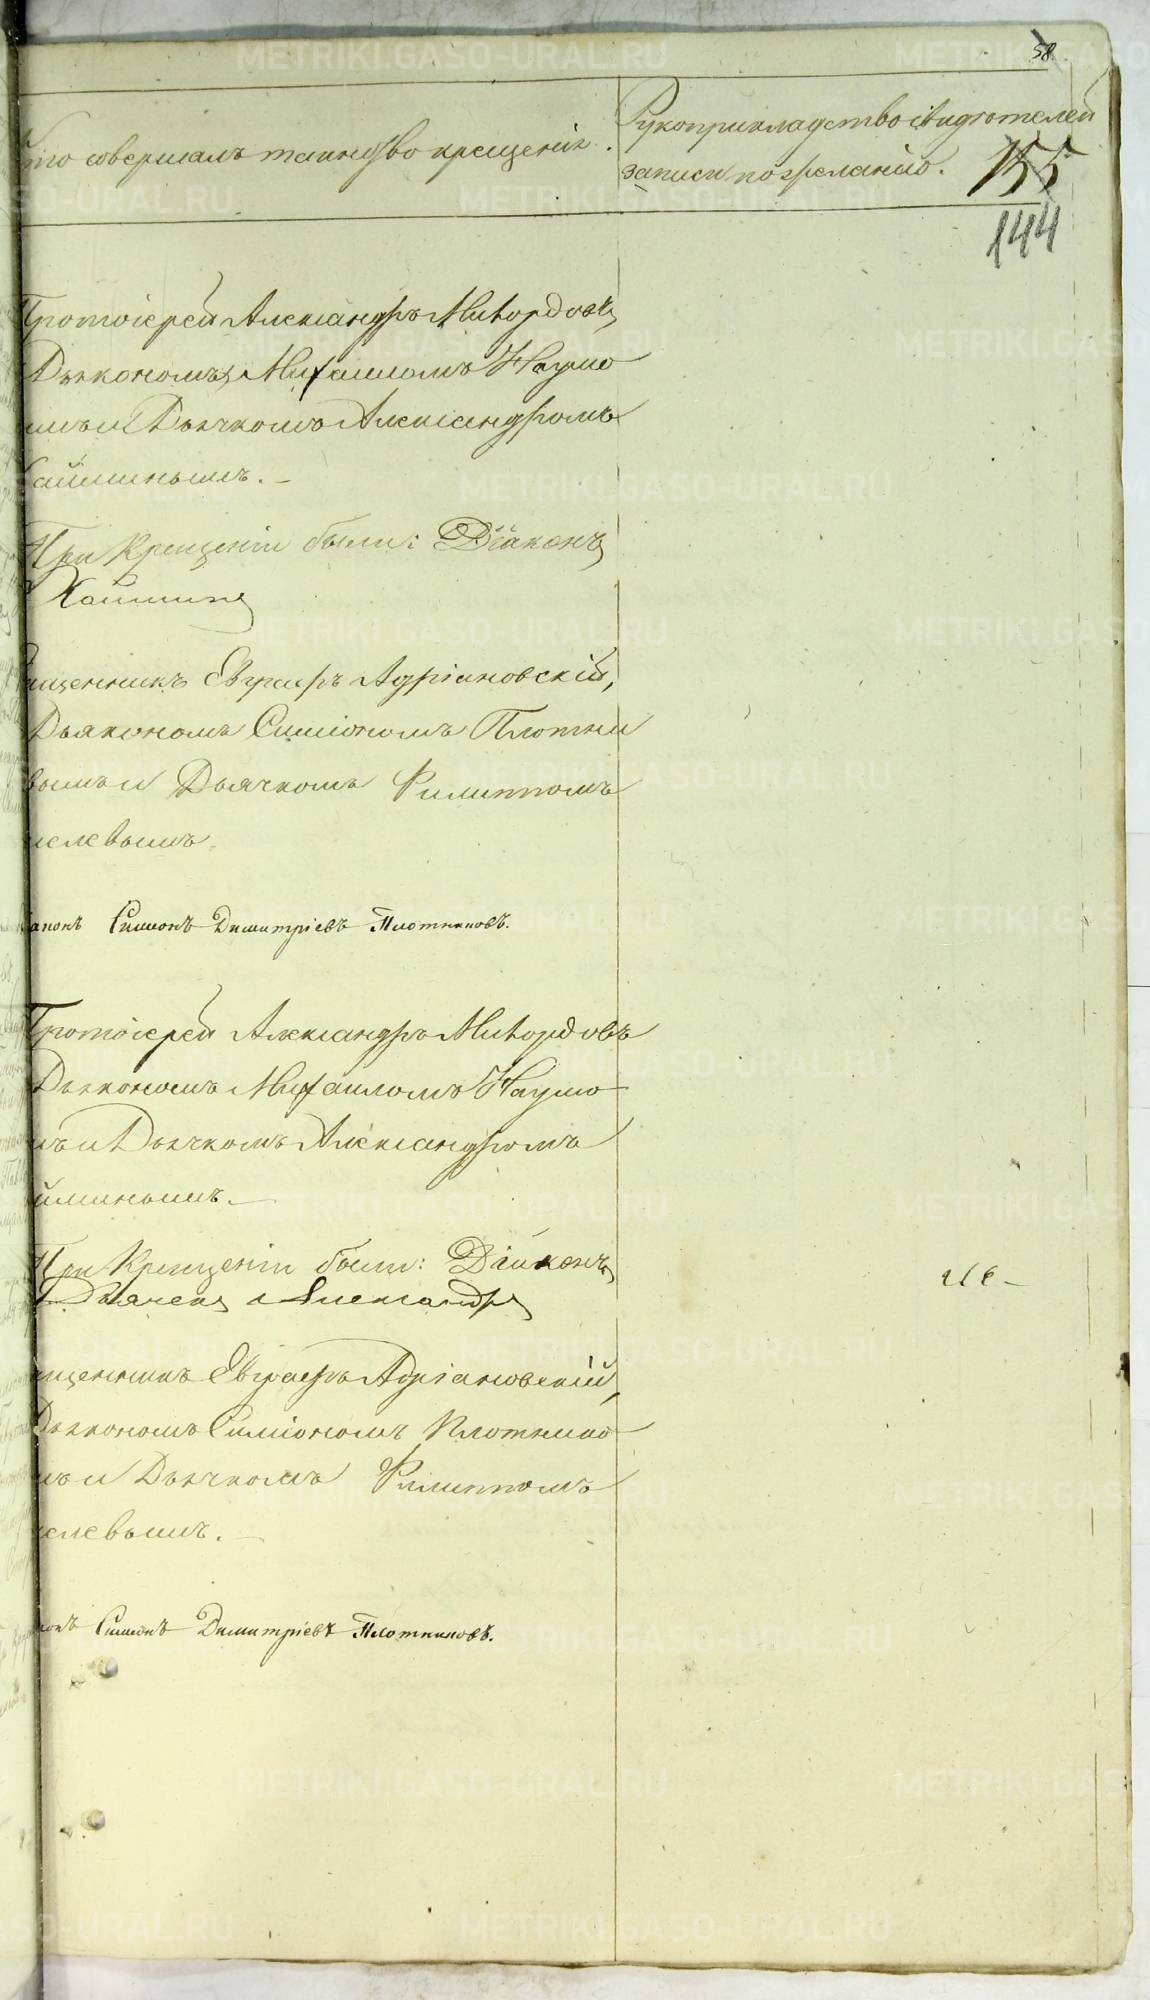 58
Кто совершалъ таинство крещенія.
Рукоприкладство свидѣтелей
записи по желанію.
155
144
Протоіерей Александръ Миловидовъ
Дьякономъ Михаиломъ Наумо
мъ и Дьячкомъ Александромъ
При крещеніи были: Діаконъ
Священникъ Евграфъ Адріановскій,
Дьякономъ Симіономъ Плотни
вымъ и Дьячкомъ Филиппомъ
елевымъ.
Діаконъ Симеонъ Димитріевъ Плотниковъ.
Протоіерей Александръ Миловидовъ
Дьякономъ Михаиломъ Наумо
мъ и Дьячкомъ Александромъ
йминымъ.
При крещеніи были: Діаконъ
Дьячекъ Александръ
Священникъ Евграфъ Адріановскій,
Дьякономъ Симіономъ Плотнико
мъ и Дьячкомъ Филиппомъ
елевымъ.
конъ Симеонъ Димитріевъ Плотниковъ.
METRIKI.GASO-URAL.RU